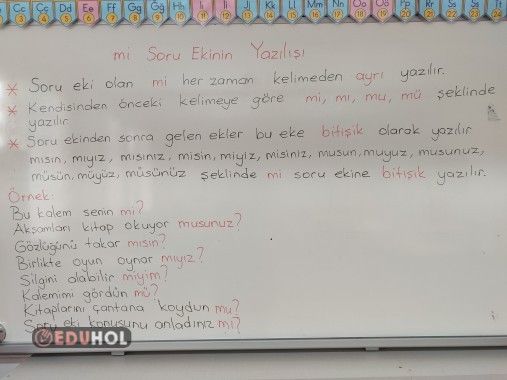 Cc Çç Dd Ee Ff Gg Ğğ Hh Iı İi Jj Kk Ll Mm Nn Oo Öö Pp Rr Ss Şş Tt
3 4 5 6 7 8 9 10 11 12 13 14 15 16 17 18 19 20 21 22 23 24
mi Soru Ekinin Yazılışı
* Soru eki olan mi her zaman kelimeden ayrı yazılır.
* Kendisinden önceki kelimeye göre mi, mı, mu, mü şeklinde
yazılır.
* Soru ekinden sonra gelen ekler bu eke bitişik olarak yazılır
mısın, mıyız, mısınız, misin, miyiz, misiniz, musun, muyuz, musunuz,
müsün, müyüz, müsünüz şeklinde mi soru ekine bitişik yazılır.
Örnek:
Bu kalem senin mi?
Akşamları kitap okuyor musunuz?
Gözlüğünü takar mısın?
Birlikte oyun oynar mıyız?
Silgini alabilir miyim?
Kalemimi gördün mü?
Kitaplarını çantana koydun mu?
Soru eki konusunu anladınız mı?
EDUHOL